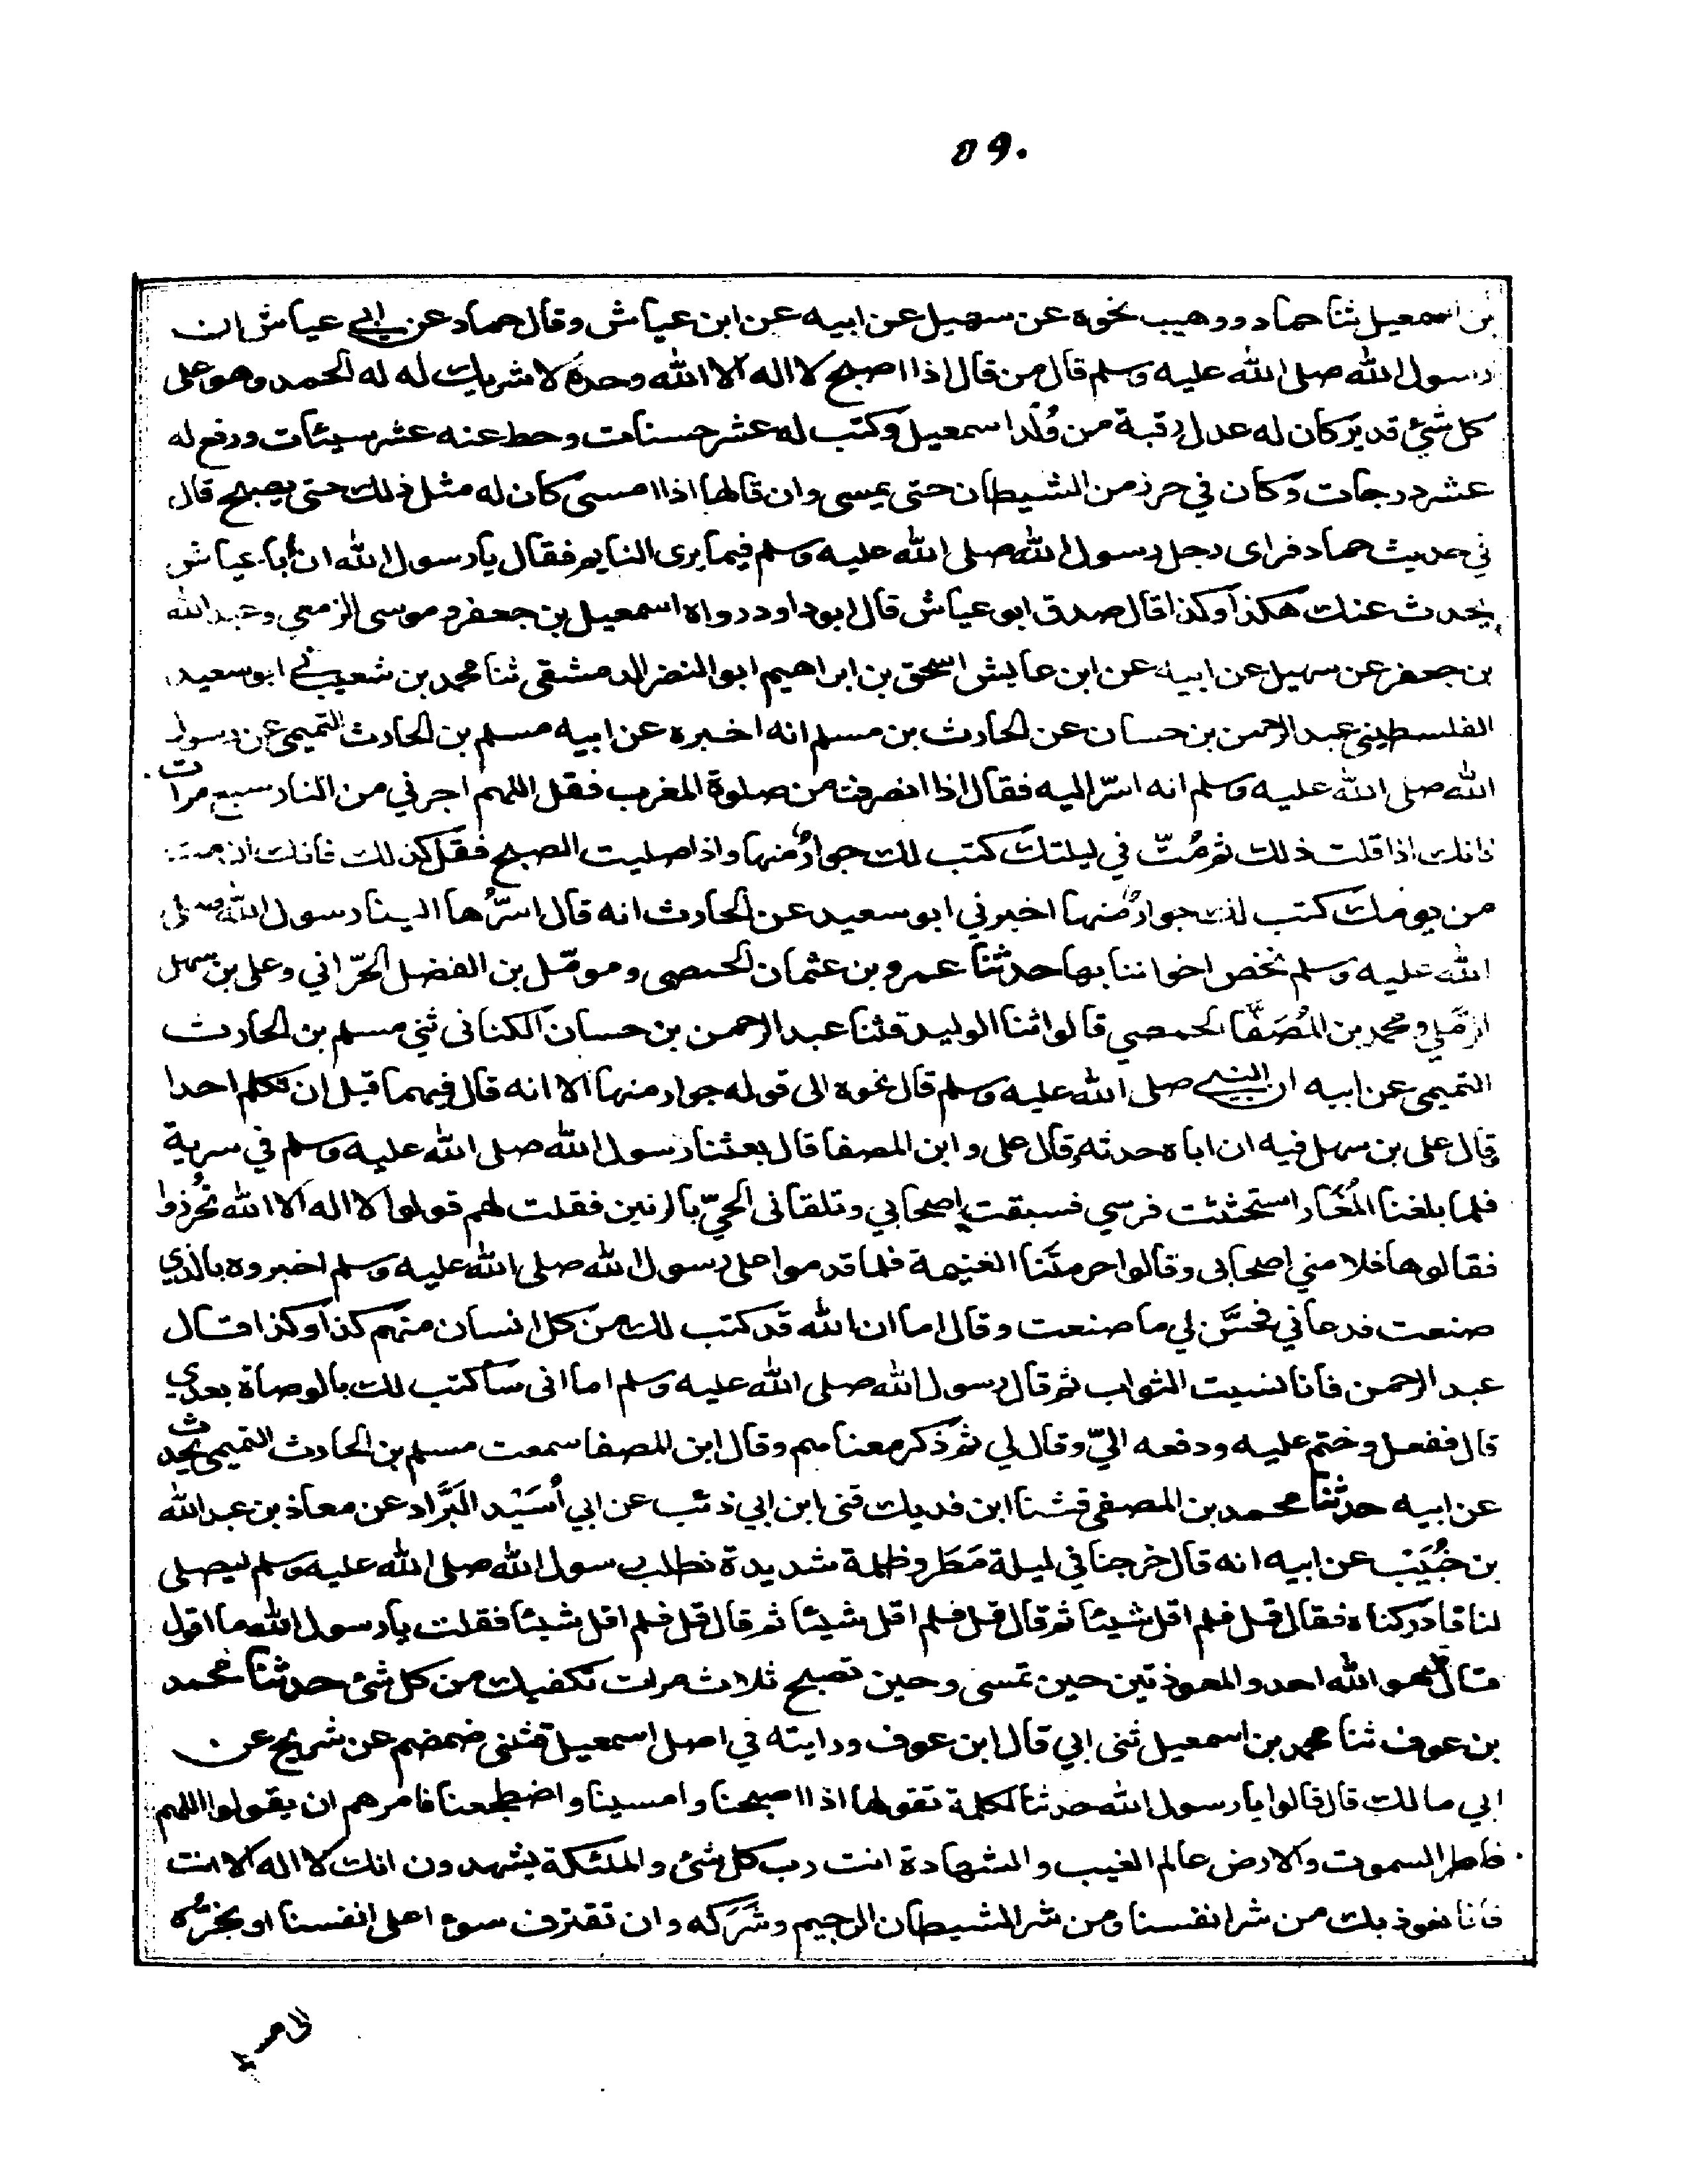 ٥٩٠
بن اسمعيل ثنا حماد ووهيب نحوه عن سهيل عن ابيه عن ابن عياش وقال حماد عن ابي عياش ان
رسول الله صلى الله عليه وسلم قال من قال اذا اصبح لا اله الا الله وحده لا شريك له له الحمد وهو على
كل شئ قدير كان له عدل رقبة من وُلد اسمعيل وكتب له عشر حسنات وحط عنه عشر سيئات ورفع له
عشر درجات وكان في حرز من الشيطان حتى يمسى وان قالها اذا امسى كان له مثل ذلك حتى يصبح قال
في حديث حماد فراى رجل رسول الله صلى الله عليه وسلم فيما يرى النايم فقال يا رسول الله ان ابا عياش
يحدث عنك هكذا وكذا قال صدق ابو عياش قال ابو داود رواه اسمعيل بن جعفر وموسى الزمعي وعبد الله
بن جعفر عن سهيل عن ابيه عن ابن عايش اسحق بن ابراهيم ابو النضر الدمشقى ثنا محمد بن شعيب ني ابو سعيد
الفلسطينى عبد الرحمن بن حسان عن الحارث بن مسلم انه اخبره عن ابيه مسلم بن الحارث التميمى عن رسول
الله صلى الله عليه وسلم انه اسرّ اليه فقال اذا انصرفت من صلوة المغرب فقل اللهم اجرني من النار سبع مرات
فانك اذا قلت ذلك ثم مُتّ في ليلتك كتب لك جوارٌ منها واذا صليت الصبح فقل كذلك فانك ان مت
من يومك كتب لك جوارٌ منها اخبرني ابو سعيد عن الحارث انه قال اسرَّها الينا رسول الله صلى
الله عليه وسلم نخص اخواننا بها حدثنا عمرو بن عثمان الحمصى ومومّل بن الفضل الحرّاني وعلى بن سهل
الرملي ومحمد بن المُصَفّا الحمصي قالوا ثنا الوليد قثنا عبد الرحمن بن حسان الكنانى ثني مسلم بن الحارث
التميمى عن ابيه ان النبي صلى الله عليه وسلم قال نحوه الى قوله جوار منها الا انه قال فيهما قبل ان تكلم احدا
قال على بن سهل فيه ان اباه حدثه وقال على وابن المصفا قال بعثنا رسول الله صلى الله عليه وسلم في سرية
فلما بلغنا المُغار استحثثت فرسي فسبقت اصحابي وتلقانى الحيّ بالرنين فقلت لهم قولوا لا اله الا الله تُحرزوا
فقالوها فلامني اصحابى وقالوا حرمتَنا الغنيمة فلما قدموا على رسول الله صلى الله عليه وسلم اخبروه بالذي
صنعت فدعاني فحسَّن لي ما صنعت وقال اما ان الله قد كتب لك من كل انسان منهم كذا وكذا قال
عبد الرحمن فانا نسيت الثواب ثم قال رسول الله صلى الله عليه وسلم اما انى ساكتب لك بالوصاة بعدي
قال ففعل وختم عليه ودفعه اليّ وقال لي ثم ذكر معناهم وقال ابن المصفا سمعت مسلم بن الحارث التميمى يحدث
عن ابيه حدثنا محمد بن المصفى قثنا ابن فديك قنى ابن ابي ذئب عن ابي اُسَيْد البَرَّاد عن معاذ بن عبد الله
بن خُبَيْب عن ابيه انه قال خرجنا في ليلة مَطَر وظلمة شديدة نطلب رسول الله صلى الله عليه وسلم ليصلى
لنا فادركناه فقال قل فلم اقل شيئا ثم قال قل فلم اقل شيئا ثم قال قل فلم اقل شيئا فقلت يا رسول الله ما اقول
قال قل هو الله احد والمعوذتين حين تمسى وحين تصبح ثلاث مرات تكفيك من كل شئ حدثنا محمد
بن عوف ثنا محمد بن اسمعيل ثنى ابي قال ابن عوف ورايته في اصل اسمعيل قثنى ضمضم عن شريح عن
ابي مالك قال قالوا يا رسول الله حدثنا بكلمة نقولها اذا اصبحنا وامسينا واضطجعنا فامرهم ان يقولوا اللهم
فاطر السموت والارض عالم الغيب والشهادة انت رب كل شئ والملئكة يشهدون انك لا اله الا انت
فانا نعوذ بك من شر انفسنا ومن شر الشيطان الرجيم وشَرَكه وان نقترف سوءا على انفسنا او نجرُّه